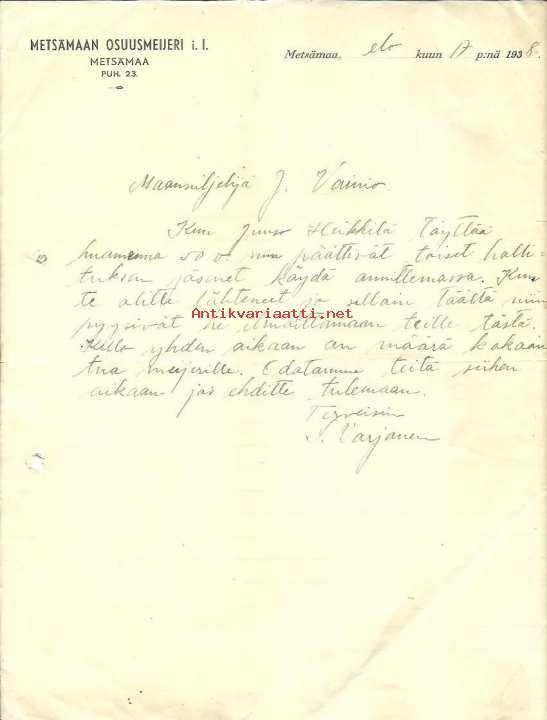 METSÄMAAN OSUUSMEIJERI i. l.
METSÄMAA
PUH. 23.
Metsämaa, elo kuun 17 p:nä 1938.
Maanviljelijä J. Vainio
Kun Juuso Heikkilä täyttää
huomenna 50 v. niin päättivät toiset halli-
tuksen jäsenet käydä onnittemassa. Kun
te olitte lähteneet jo silloin täältä niin
pyysivät he ilmoittamaan teille tästä.
Antikvariaatti.net
Kello yhden aikaan on määrä kokoon
tua meijerille. Odotamme teitä siihen
aikaan jos ehditte tulemaan.
Terveisin
Varjonen